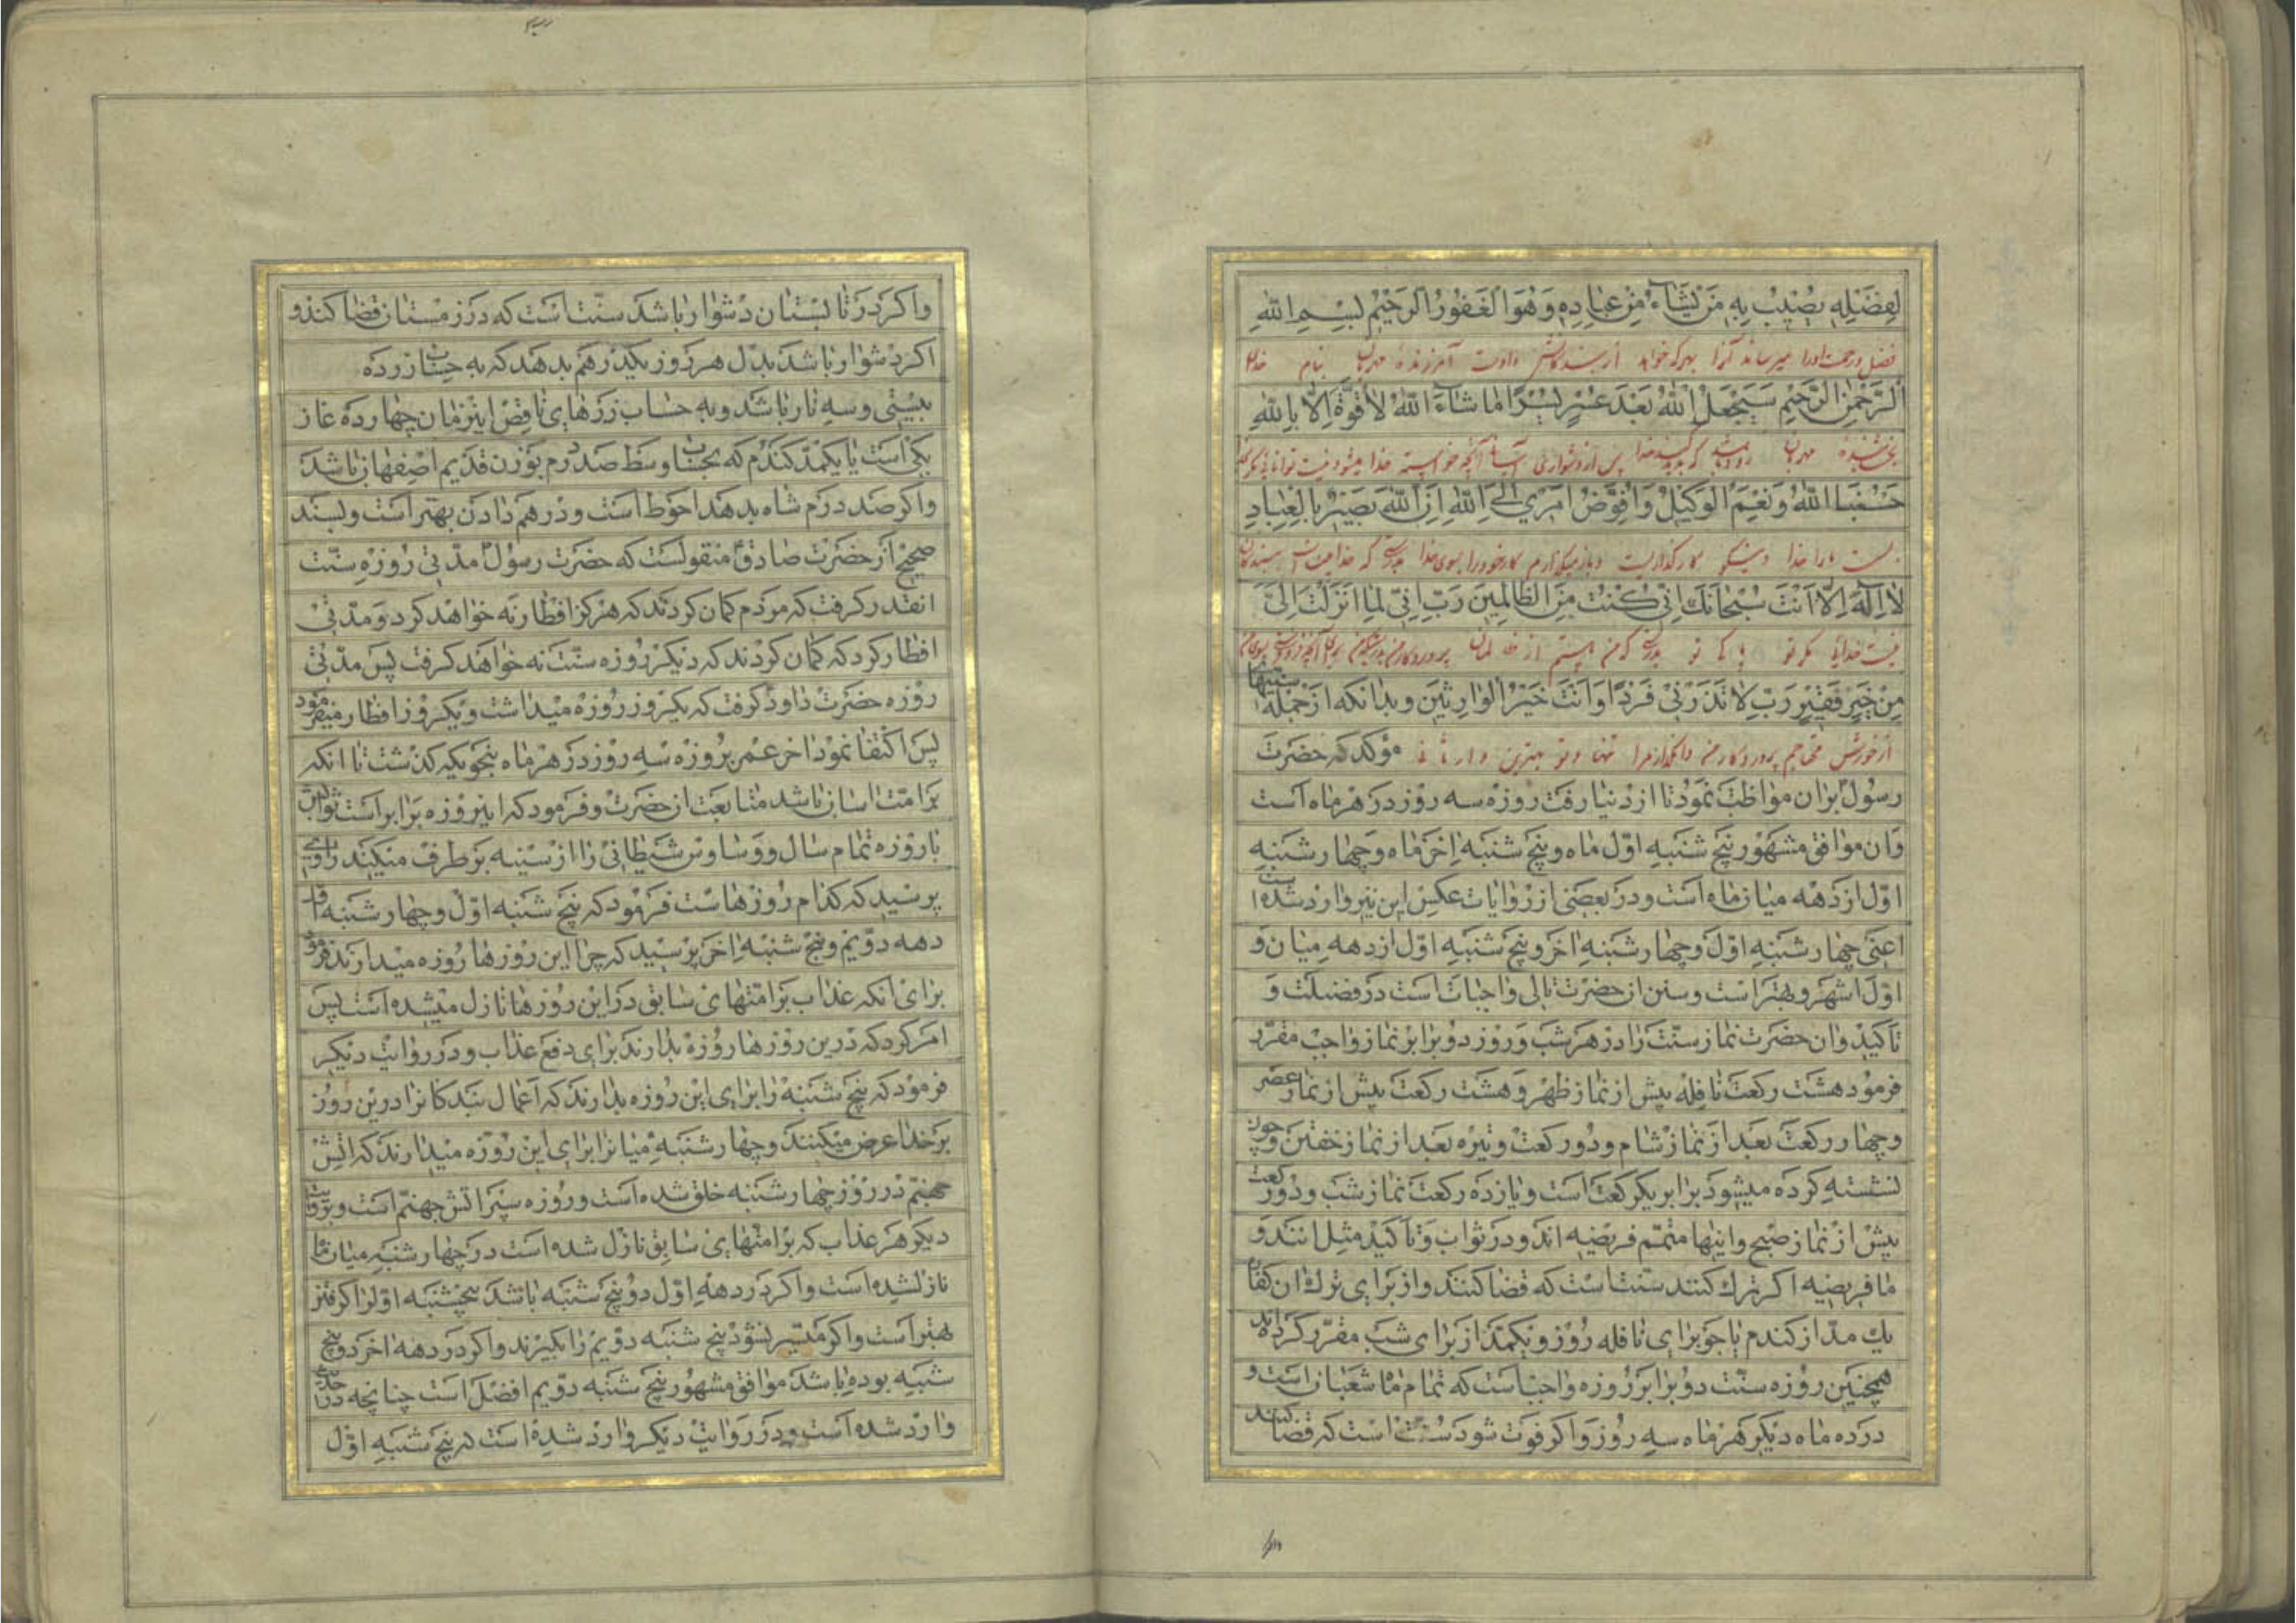 لِفَضْلِهِ يُصِيبُ بِهِ مَنْ يَشَاءُ مِنْ عِبَادِهِ وَهُوَ الْغَفُورُ الرَّحِيمُ بِسْمِ اللهِ
فضل ورحمت اورا میرساند آنرا بهر که خواهد از بندگانش واوست آمرزنده مهربان بنام خدا
الرَّحْمٰنِ الرَّحِيمِ سَيَجْعَلُ اللهُ بَعْدَ عُسْرٍ يُسْرًا مَا شَاءَ اللهُ لَا قُوَّةَ اِلَّا بِاللهِ
بخشنده مهربان زود باشد که خدا پس از دشواری آنچه خواسته خدا میشود نیست توانائی مگر
حَسْبُنَا اللهُ وَنِعْمَ الْوَكِيلُ وَاُفَوِّضُ اَمْرِي اِلَى اللهِ اِنَّ اللهَ بَصِيرٌ بِالْعِبَادِ
بست مارا خدا ونیکو کارگذاریست وباز میگذارم کار خودرا بسوی خدا بدرستی که خدا
لَا اِلٰهَ اِلَّا اَنْتَ سُبْحَانَكَ اِنِّي كُنْتُ مِنَ الظَّالِمِينَ رَبِّ اِنِّي لِمَا اَنْزَلْتَ اِلَيَّ
نیست خدایی مگر تو پاکی تو بدرستی که من هستم از ظالمان پروردگار من
مِنْ خَيْرٍ فَقِيرٌ رَبِّ لَا تَذَرْنِي فَرْدًا وَاَنْتَ خَيْرُ الْوَارِثِينَ وبدانکه از جمله سنتها
محتاجم پروردگار من وامگذار مرا تنها وتو بهترین وارثانی مؤکد که حضرت
رسول بران مواظبت نمود تا از دنیا رفت روزه سه روز در هر ماه است
وان موافق مشهور پنج شنبه اوّل ماه و پنج شنبه اخر ماه و چهار شنبه
اوّل از دهه میان ماه است ودر بعضی از روایات عکس این نیز وارد شده است
اعنی چهار شنبه اوّل و چهار شنبه اخر و پنج شنبه اوّل از دهه میان و
اوّل اشهر و بهتر است وسنن ان حضرت تالی واجبات است در فضیلت و
تاکید وان حضرت نماز سنّت را در هر شب و روز دو برابر نماز واجب مقرّر
فرمود هشت رکعت نافله پیش از نماز ظهر و هشت رکعت پیش از نماز عصر
و چهار رکعت بعد از نماز شام ودو رکعت وتیره بعد از نماز خفتن و چون
نشسته کرده میشود برابر یکرکعت است و یازده رکعت نماز شب ودو رکعت
پیش از نماز صبح واینها متمّم فریضه اند ودر ثواب و تاکید مثل انند و
مافریضه اکر ترك کنند سنّت است که قضا کنند واز برای ترك ان کفّاره
یك مدّ از کندم یا جو برای نافله روز ویکمدّ از برای شب مقرّر کرده اند
همچنین روزه سنّت دو برابر روزه واجبست که تمام ماه شعبان است و
در ده ماه دیکر هر ماه سه روز و اکر فوت شود سنّت است که قضا کنند
واکر در تابستان دشوار باشد سنّت است که در زمستان قضا کند و
اکر دشوار باشد بدل هر روز یکدرهم بدهد که به حساب زر ده
بیستی وسه نار باشد وبه حساب زرهای ناقص این زمان چهارده غاز
یکی است یا یکمدّ کندم که بحساب وسط صد درم بوزن قدیم اصفهان باشد
واکر صد درم شاه بدهد احوط است ودرهم دادن بهتر است و بسند
صحیح از حضرت صادق منقولست که حضرت رسول مدّتی روزه سنّت
انقدر کرفت که مردم کمان کردند که هرکز افطار نه خواهد کرد و مدّتی
افطار کرد که کمان کردند که دیکر روزه سنّت نه خواهد کرفت پس مدّتی
روزه حضرت داود کرفت که یکروز روزه میداشت ویکروز افطار میفرمود
پس اکتفا نمود اخر عمر بروزه سه روز در هر ماه بنحویکه کذشت تا انکه
بر امّت اسان باشد متابعت ان حضرت و فرمود که این روزه برابر است ثوابش
با روزه تمام سال و وساوس شیطانی را از سینه بر طرف میکند راوی
پرسید که کدام روزهاست فرمود که پنج شنبه اوّل و چهار شنبه اوّل
دهه دوّیم و پنج شنبه اخر پرسید که چرا این روزها روزه میدارند فرمود
برای انکه عذاب بر امّتهای سابق در این روزها نازل میشده است پس
امر کرد که درین روزها روزه بدارند برای دفع عذاب ودر روایت دیکر
فرمود که پنج شنبه را برای این روزه بدارند که اعمال بندکانرا درین روز
بر خدا عرض میکنند و چهار شنبه میانرا برای این روزه میدارند که اتش
جهنّم در روز چهار شنبه خلق شده است وروزه سپر اتش جهنّم است وبروایت
دیکر هر عذاب که بر امّتهای سابق نازل شده است در چهار شنبه میان ماه
نازلشده است واکر در دهه اوّل دو پنج شنبه باشد پنجشنبه اوّلرا اکر کیرند
بهتر است واکر میسّر نشود پنج شنبه دوّیم را بکیرند واکر در دهه اخر دو پنج
شنبه بوده باشد موافق مشهور پنج شنبه دوّیم افضل است چنانچه در احادیث
وارد شده است ودر روایت دیکر وارد شده است که پنج شنبه اوّل